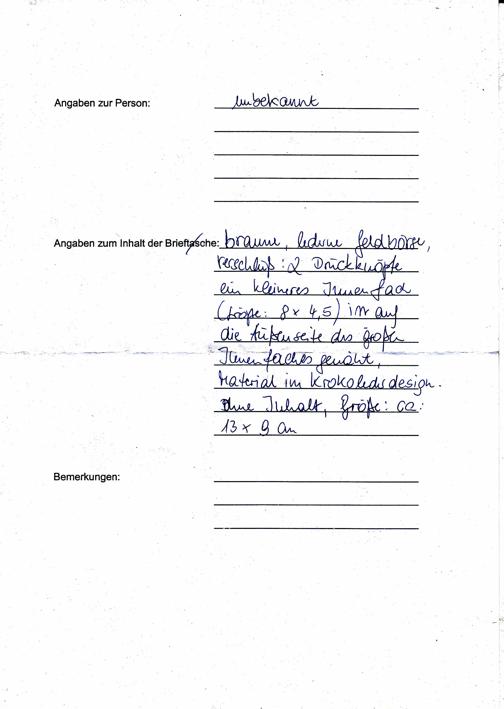 Angaben zur Person: unbekannt
Angaben zum Inhalt der Brieftasche: braune, lederne Geldbörse,
Verschluß: 2 Druckknöpfe
ein kleineres Innenfach
(Größe: 8 x 4,5) ist auf
die Außenseite des großen
Innenfaches genäht,
Material im Krokoledesign.
Ohne Inhalt, Größe: ca.
13 x 9 cm
Bemerkungen: